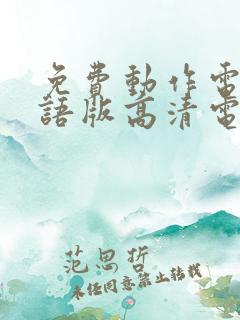 免費動作電
語版高清電
范思哲
未经同意禁止转载